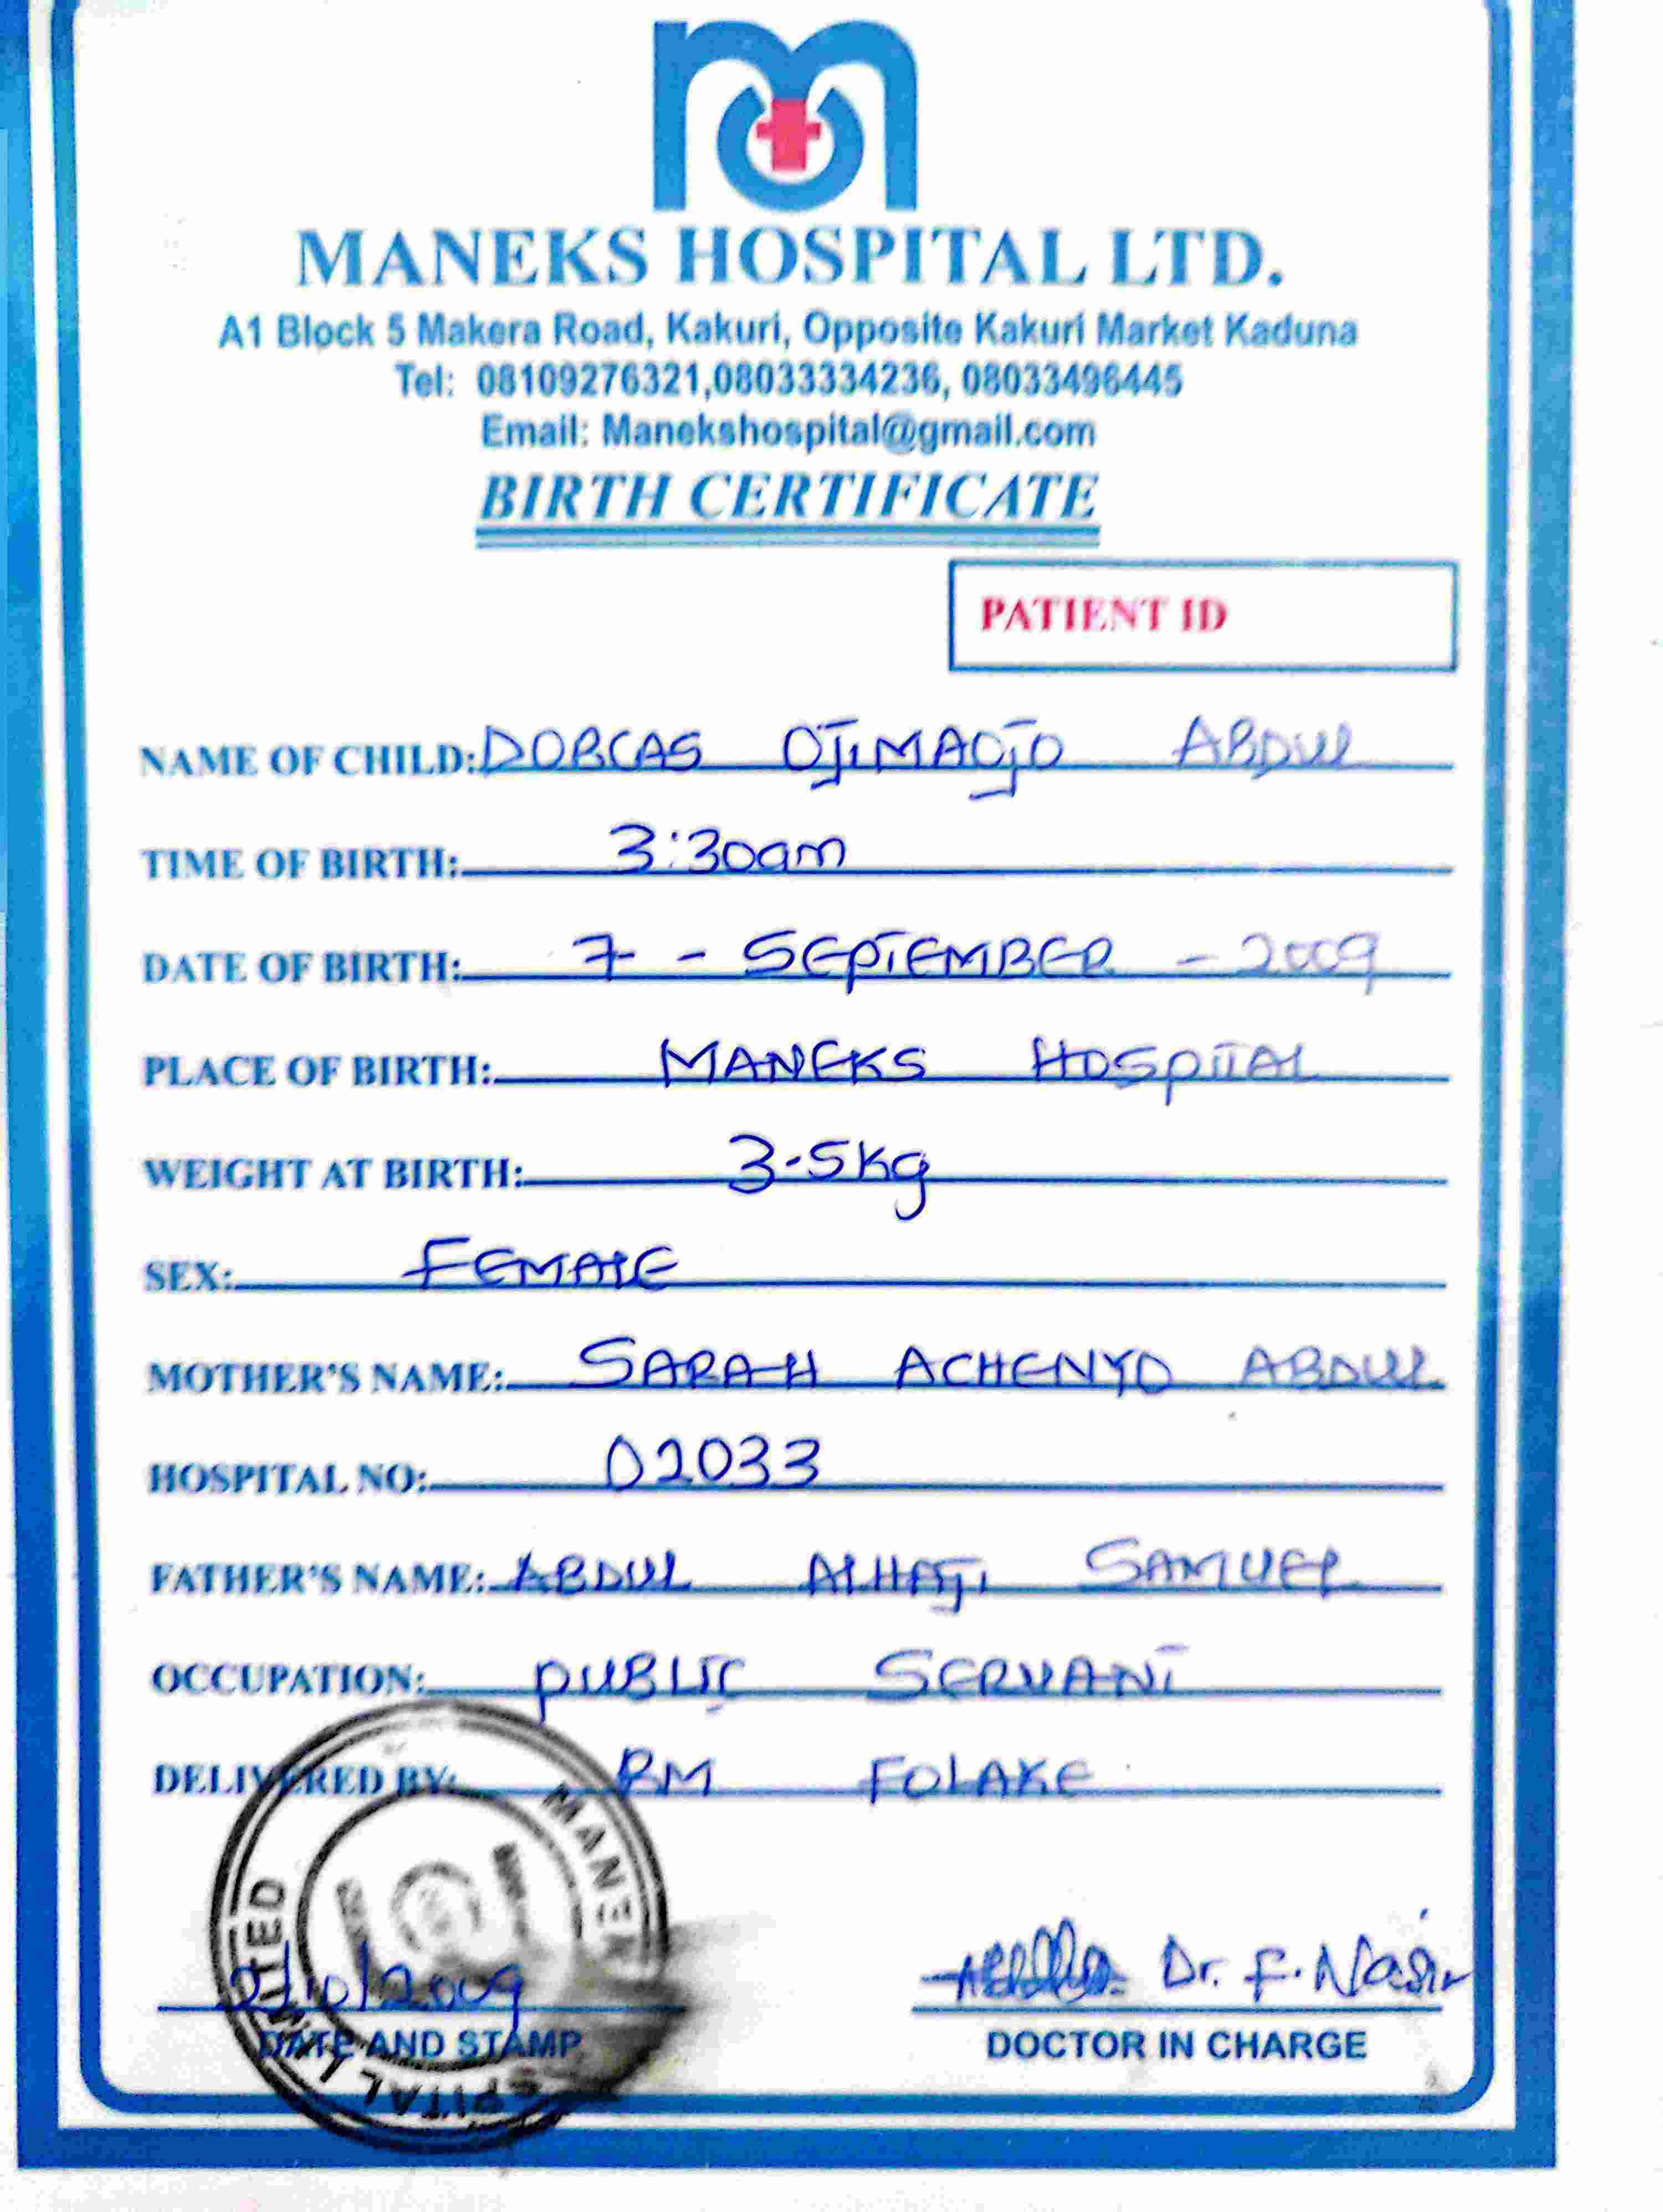 MANEKS HOSPITAL LTD.
A1 Block 5 Makera Road, Kakuri, Opposite Kakuri Market Kaduna
Tel: 08109276321,08033334236, 08033496445
Email: Manekshospital@gmail.com
BIRTH CERTIFICATE
PATIENT ID
NAME OF CHILD: DORCAS OJIMAOJO ABDUL
TIME OF BIRTH: 3:30am
DATE OF BIRTH: 7 - SEPTEMBER - 2009
PLACE OF BIRTH: MANEKS HOSPITAL
WEIGHT AT BIRTH: 3.5kg
SEX: FEMALE
MOTHER'S NAME: SARAH ACHENYO ABDUL
HOSPITAL NO: 02033
FATHER'S NAME: ABDUL ALHAJI SAMUEL
OCCUPATION: PUBLIC SERVANT
DELIVERED BY: RM FOLAKE
Dr. F. Nasir
DATE AND STAMP
DOCTOR IN CHARGE